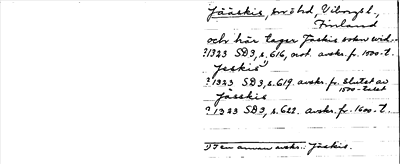 Jääskis, srähd, Viborgs l.,
Finland
och här Lager Jäskis soken vid
?1323 SD3, s. 616, not. avskr. fr. 1500-t.
Jeskis 1)
?1323 SD3, s. 619. avskr. fr. slutet av
1500-talet
Jässkis
?1323 SD3, s. 622. avskr. fr. 1600-t.
1) I en annan avskr.: Jäskis.